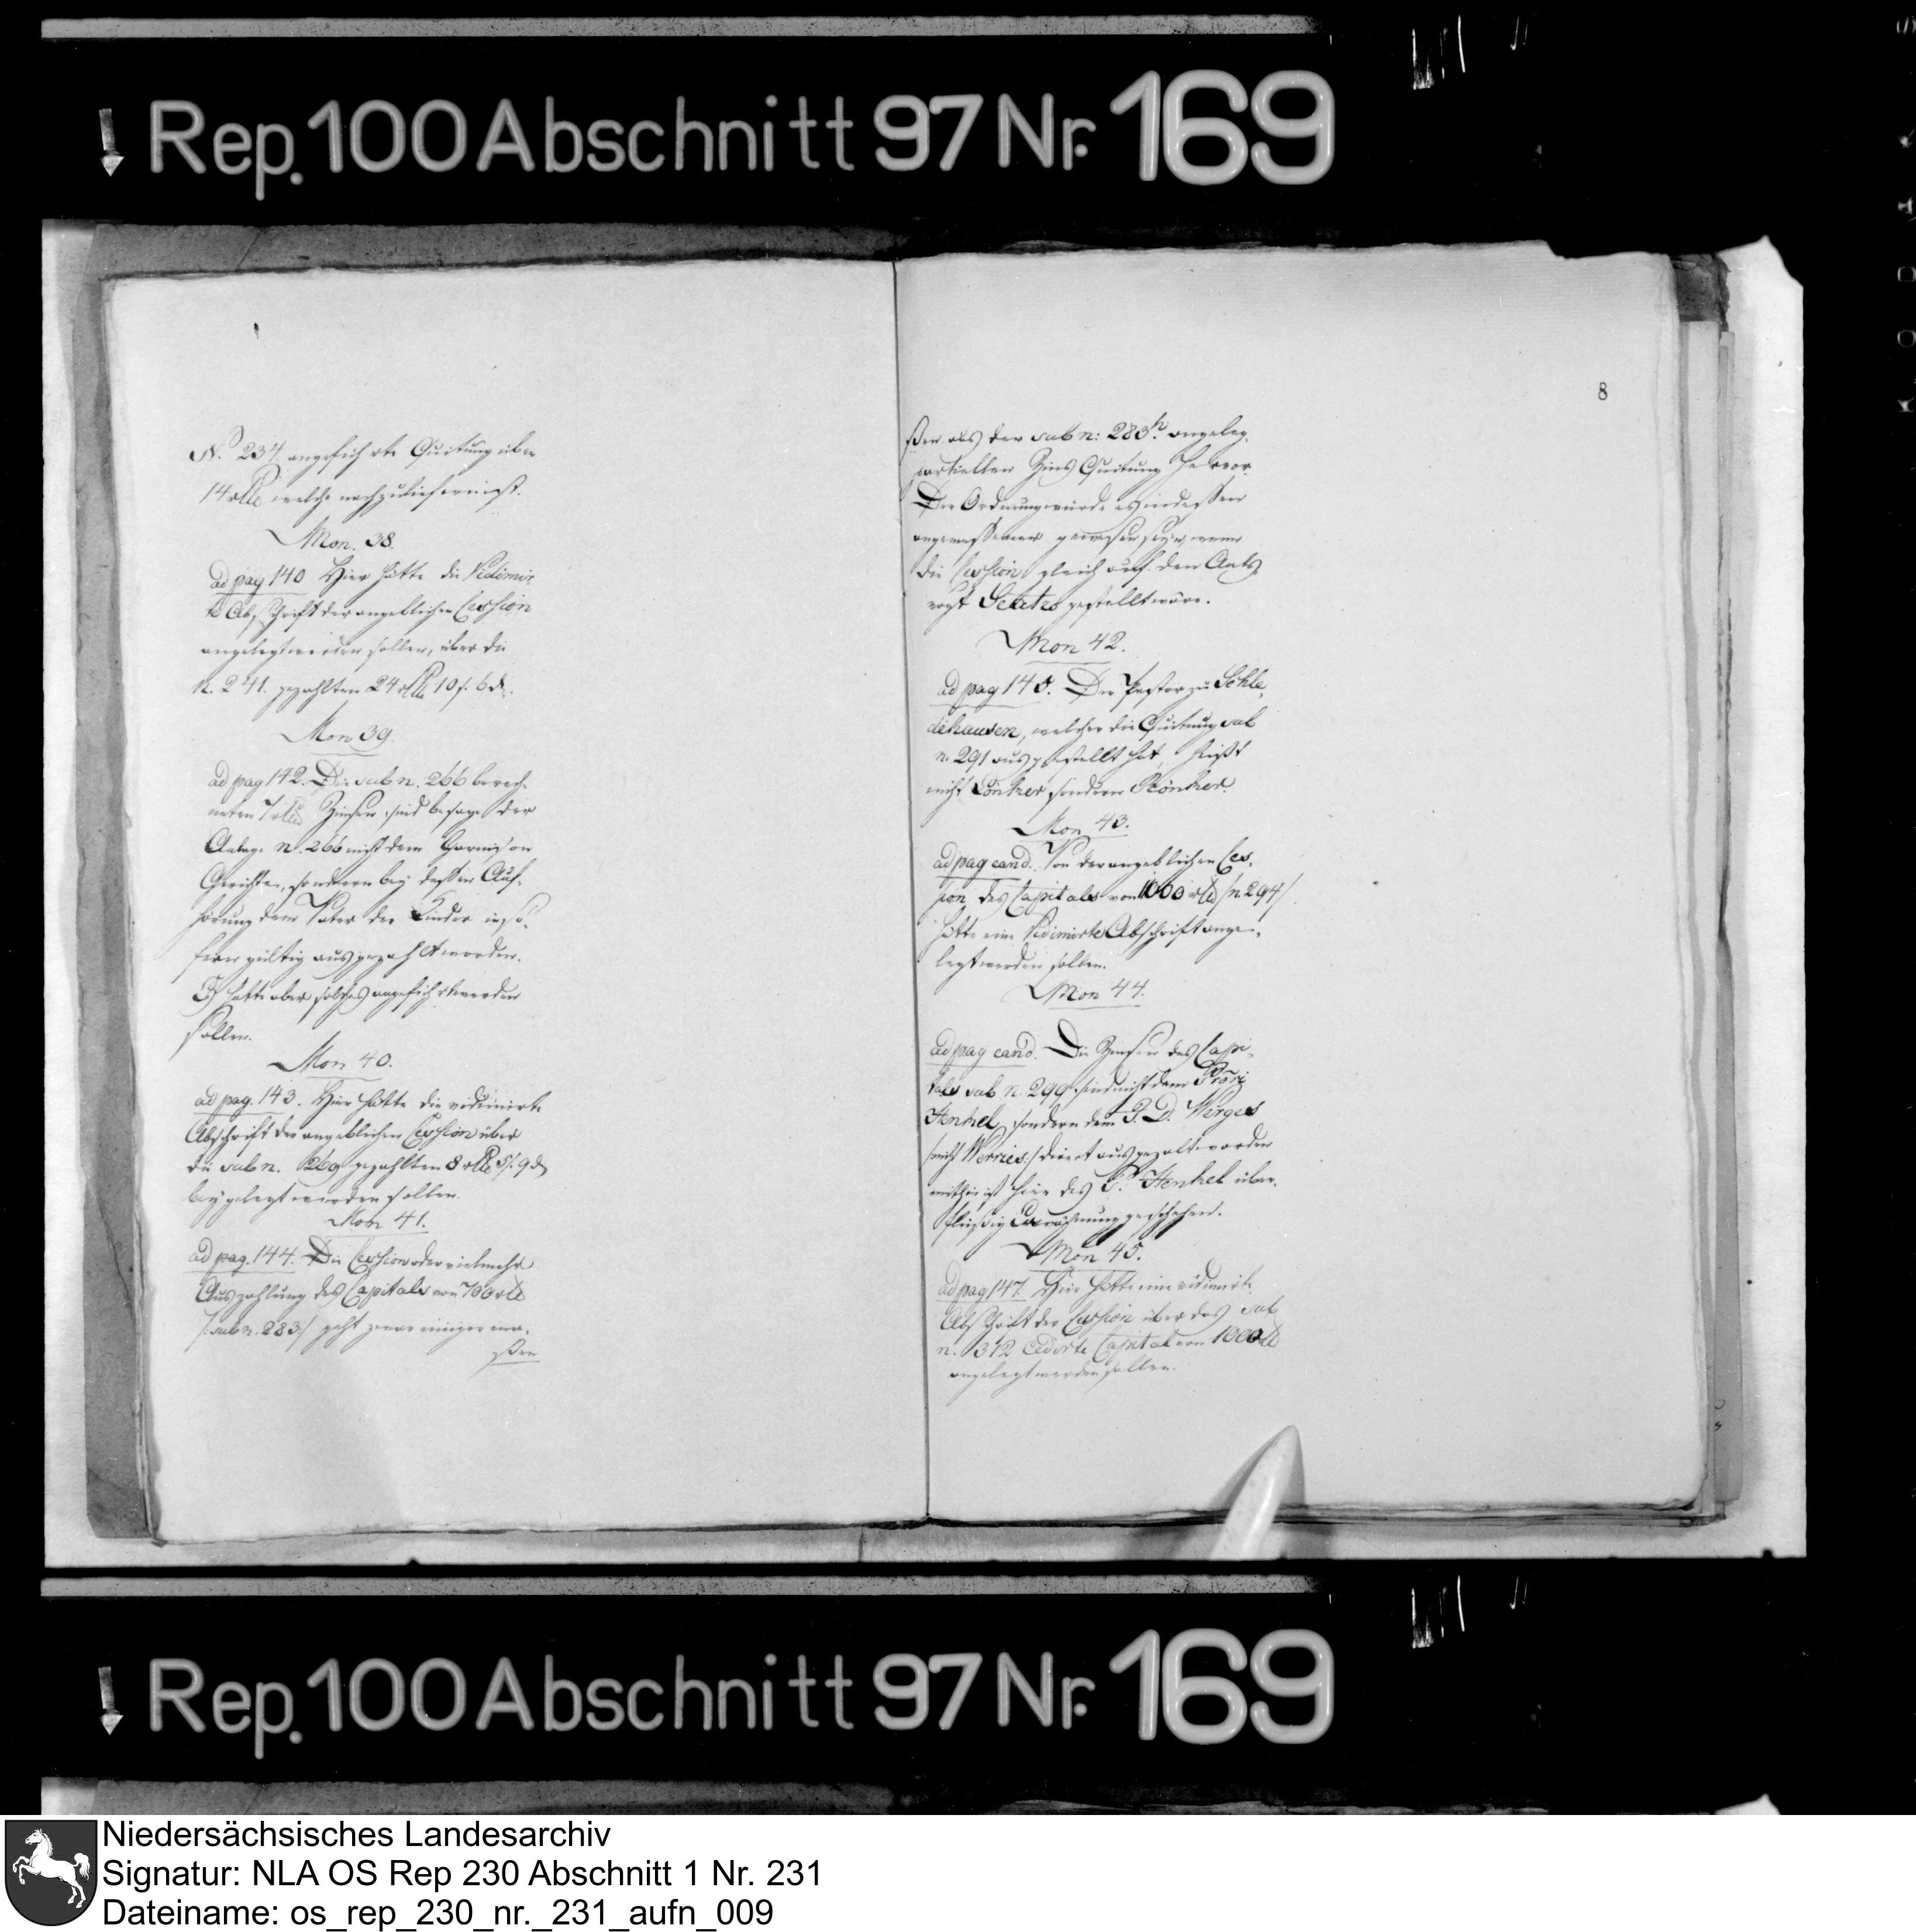 Rep. 100 Abschnitt 97 Nr. 169
N. 234 angeführte Quitung über
14 rtlr welche nachzuliefern ist.
Mon. 38.
ad pag 140 Hier hätte die Vidimir
te Abschrift der angeblichen Cession
angelegt werden sollen, über die
n. 241. gezahlten 24 rtlr 10 s. 6 d.
Mon 39.
ad pag 142. Die sub n. 266 berech-
neten 7 rtlr Zinsen sind besage der
Anlage N. 266 nicht dem Garnison
Gerichte, sondern bey dessen Auf-
hörung dem Vater der Kinder inso-
fern gültig ausgezahlt worden.
Es hätte aber solches angeführt werden
sollen.
Mon 40.
ad pag. 143. Hier hätte die vidimirte
Abschrift der angeblichen Cession über
die sub n. 269 gezahlten 8 rtlr 5 s. 9 d
beygelegt werden sollen.
Mon 41.
ad pag. 144. Die Cession oder vielmehr
Auszahlung des Capitales von 700 rtlr
/: sub n. 283 :/ geht zwar einigerma-
ßen
8
ßen aus der sub n: 283 angeleg.
partiellen Zins Quitung hervor
Der Ordnung würde es indessen
angemessener gewesen seyn, wenn
die Cession gleich auf den
vogt gestellt wäre.
Mon 42.
ad pag 145. Der Pastor zu Schle-
dehausen, welcher die Quitung sub
n. 291 ausgestellt hat, heißt
nicht Lönker sondern Rönker.
Mon 43.
ad pag eand. Von der angeblichen Ces-
sion des Capitales von 1000 rtlr /n. 294/
hätte eine Vidimirte Abschrift ange-
legt werden sollen.
Mon 44.
ad pag eand. Die Zinsen des Capi-
tals sub n. 299 sind nicht dem
Henkel, sondern dem P. D. Wirges
/nicht Werries:/ direct ausgezalt worden
mithin ist hier des P. Henkel über-
flüßig Erwähnung geschehen.
Mon 45.
ad pag 147. Hier hätte eine vidimirte
Abschrift der Cession über das sub
n. 312 Cedirte Capital von 1000 rtlr
angelegt werden sollen.
Rep. 100 Abschnitt 97 Nr. 169
Niedersächsisches Landesarchiv
Signatur: NLA OS Rep 230 Abschnitt 1 Nr. 231
Dateiname: os_rep_230_nr._231_aufn_009